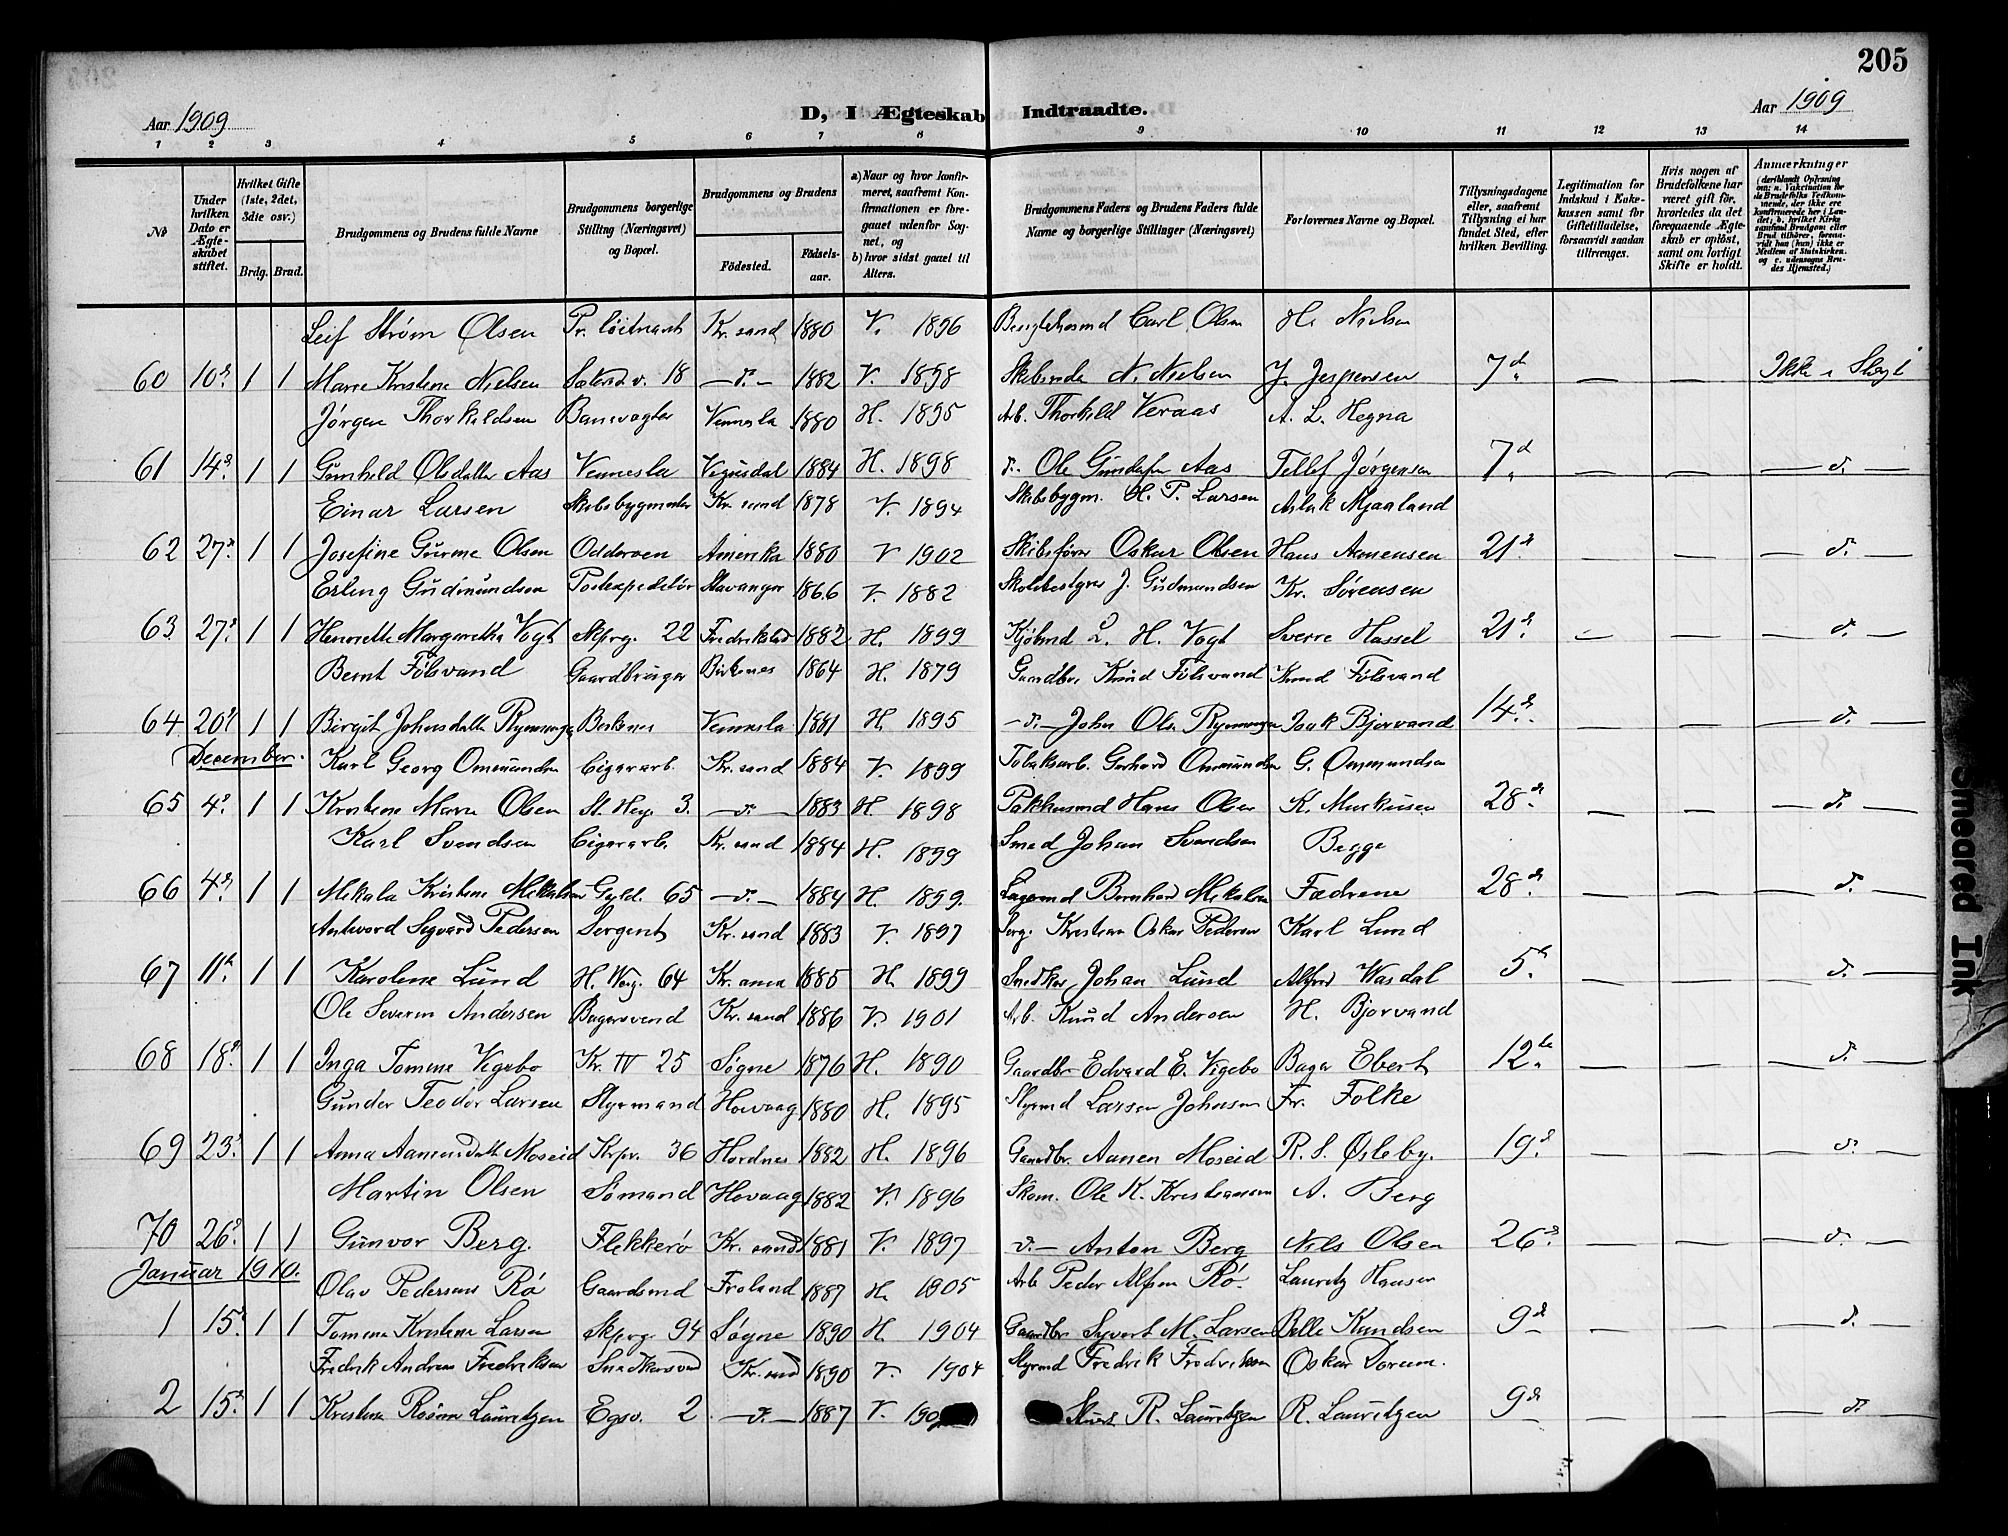 205
Aar 1909
D, I Ægteskab Indtraadte.
Aar 1909
1 2 3 4 5 6 7 8 9 10 11 12 13 14
No
Under hvilken Dato er Ægteskabet stiftet.
Hvilket Gifte (1ste, 2det, 3die osv.)
Brdg. Brud.
Brudgommens og Brudens fulde Navne
Brudgommens borgerlige Stilling (Næringsvei) og Bopæl.
Brudgommens og Brudens
Födested. Födsels-aar.
a) Naar og hvor konfirmeret, saafremt Konfirmationen er foregaaet udenfor Sognet, og
b) hvor sidst gaaet til Alters.
Brudgommens Faders og Brudens Faders fulde Navne og borgerlige Stillinger (Næringsvei)
Forlovernes Navne og Bopæl.
Tillysningsdagene eller, saafremt Tillysning ei har fundet Sted, efter hvilken Bevilling.
Legitimation for Indskud i Enkekassen samt for Giftetilladelse, forsaavidt saadan tiltrænges.
Hvis nogen af Brudefolkene har været gift før, hvorledes da det foregaaende Ægteskab er oplöst, samt om lovligt Skifte er holdt.
Anmærkninger
(deriblandt Oplysning om: a. Vakcination for de Brudefolks Vedkommende, der ikke ere konfirmerede her i Landet; b. hvilket Kirkesamfund Brudgom eller Brud tilhörer, forsaavidt han (hun) ikke er Medlem af Statskirken, og c. udensogns Brudes Hjemsted.)
Leif Strøm Olsen Pr. løitnant Kr. sand 1880 V. 1896 Carl Olsen H. Nielsen
60 10d 1 1 Marie Kristine Nielsen 18 -d.- 1882 V. 1898 N. Nielsen J. Jespersen 7d — — Ikke i Slægt
Jørgen Thorkildsen Banevogter Vennesla 1880 H. 1895 Arb. Thorkild Veraas A. L. Hegna
61 14d 1 1 Gunhild Olsdatter Aas Vennesla Vegusdal 1884 H. 1898 d. Ole Aas Tellef Jørgensen 7d — — d.
Einar Larsen Skibsbygmester Kr. sand 1878 V. 1894 Skibsbygm. O. P. Larsen Aslak Mjaaland
62 27d 1 1 Josefine Olsen Odderøen Amerika 1880 V 1902 Skibsfører Oskar Olsen Hans Aanensen 21d — — d.
Erling Gudmundsen Postexpeditør Stavanger 1866 V. 1882 Skolebestyrer J. Gudmundsen Kr. Sørensen
63 27d 1 1 Henriette Margaretha Vogt Skprg. 22 Fredrikstad 1882 H. 1899 Kjøbmd L. H. Vogt Sverre Hassel 21d — — d.
Bernt Følsvand Gaardbruger Birkenes 1864 H. 1879 Gaardbr. Knud Følsvand Knud Følsvand
64 20d 1 1 Birgit Johnsdatter Birkenes Vennesla 1881 H. 1895 -d.- John Ols. Isak Bjorvand 14d — — d.
December.
Karl Georg Ommundsen Cigararb. Kr. sand 1884 V. 1899 Tobaksarb. Gerhard Ommundsen G. Ommundsen
65 4d 1 1 Kristine Marie Olsen St. Heg. 3. -d.- 1883 H. 1898 Pakhusmd Hans Olsen K. Markusen 28d — — d.
Karl Svendsen Cigararb. Kr. sand 1884 H. 1899 Smed Johan Svendsen Begge
66 4d 1 1 Mikala Kristine Mikalsen Gyld. 65 -d.- 1884 H. 1899. Lagermd Bernhard Mikalsen Fædrene 28d — — d.
Antword Sigvard Pedersen Sergent Kr. sand 1883 V. 1897 Serg. Kristian Oskar Pedersen Karl Lund
67 11t 1 1 Karoline Lund H. Werg. 64 Kr. ania 1885 H. 1899 Snedker Johan Lund Alfred Wasdal 5t — — d.
Ole Severin Andersen Bagersvend Kr. sand 1886 V. 1901 Arb. Knud Andersen H. Bjorvand
68 18d 1 1 Inga Tomine Vigebo Kr. IV 25 Søgne 1876 H. 1890 Gaardbr Edvard E. Vigebo Bager Ebert 12te — — d.
Gunder Teodor Larsen Styrmand Høvaag 1880 H. 1895 Styrmd Larsen Johnsen Fr. Folke
69 23d 1 1 Anna Aanensdatter Moseid Krpr. 36 Hordnes 1882 H. 1896 Gaardbr. Aanen Moseid R. S. Øsleby. 19d — — d.
Martin Olsen Sømand Høvaag 1882 V. 1896 Skom. Ole K. Kristiansen A. Berg
70 26d 1 1 Gunvor Berg. Flekkerø Kr. sand 1881 V. 1897 d.- Anton Berg Nils Olsen 26d — — d.
Januar 1910.
Olav Pedersens Rø Gaardsmd Froland 1887 H. 1905 Arb. Peder Alfsen Rø. Lauritz Hansen
1 15d 1 1 Tomine Kristine Larsen Skprg. 94 Søgne 1890 H. 1904 Gaardbr Syvert M. Larsen Pelle Knudsen 9d — — d.
Fredrik Andreas Fredriksen Snedkersvd Kr. sand 1890 V. 1904 Styrmd Fredrik Fredriksen Oskar Dorum.
2 15d 1 1 Kristine Lauritzen Egsv. 2 -d.- 1887 V. 190 R. Lauritzen R. Lauritzen 9d — — d.
Smeared Ink